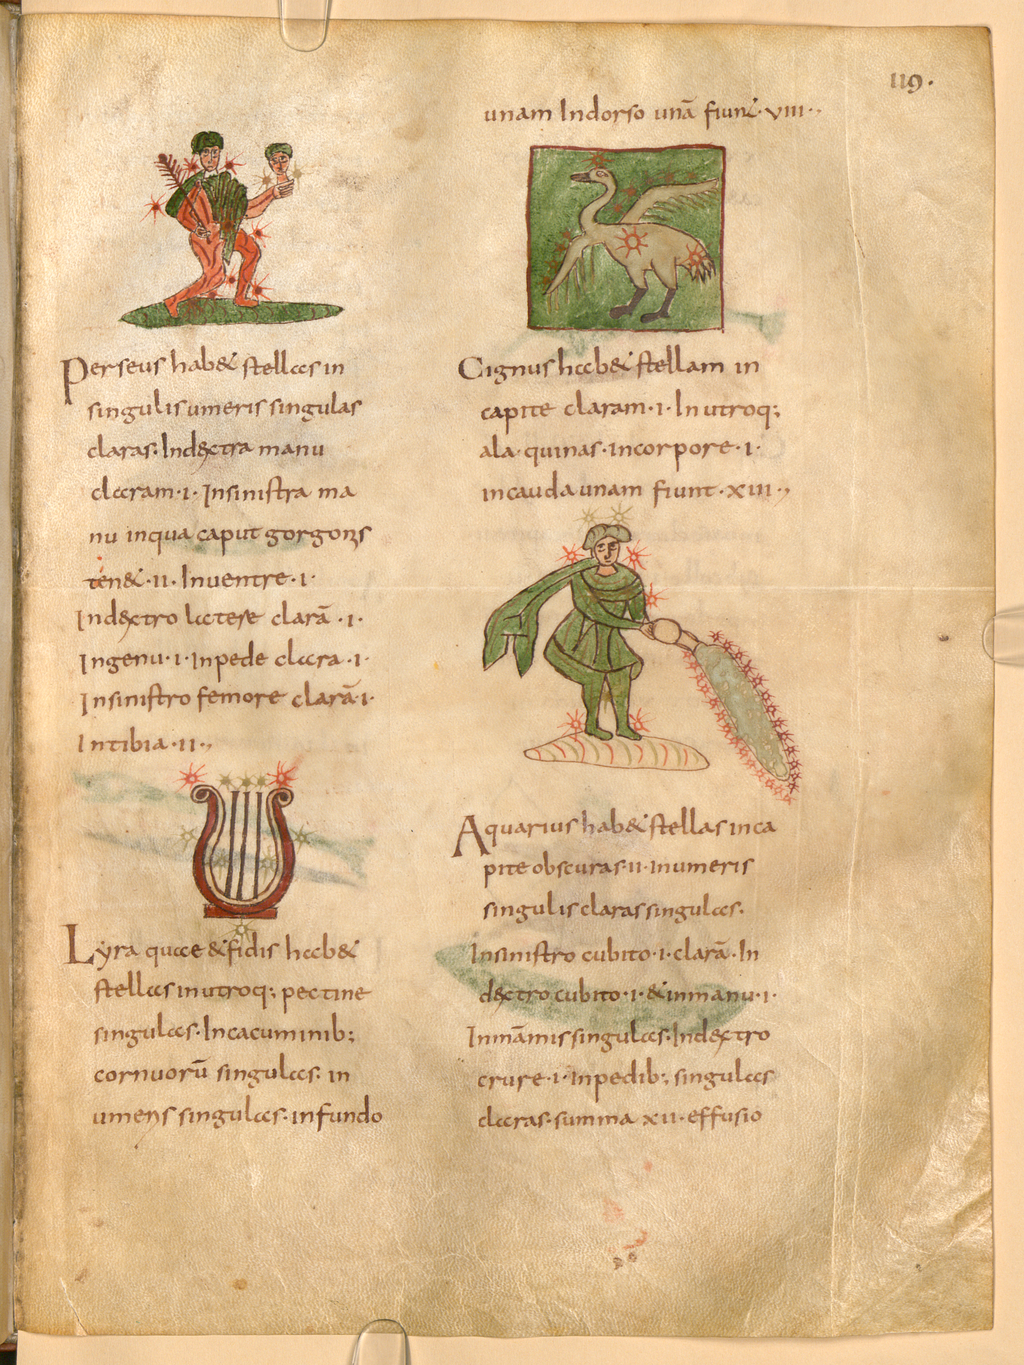 119.
Perseus hab& stellas in
singulis umeris singulas
claras. In dextra manu
claram ·I· In sinistra ma
nu in qua caput gorgonis
ten& ·II· In ventre ·I·
In dextro latere clarā ·I·
In genu ·I· In pede clara ·I·
In sinistro femore clarā ·I·
In tibia ·II·,
Lyra quae & fidis hab&
stellas in utroq; pectine
singulas. In cacuminib;
cornuorū singulas. in
umeris singulas. in fundo
unam In dorso unā fiunt ·VIII·
Cignus hab& stellam in
capite claram ·I· In utroq;
ala quinas · in corpore ·I·
in cauda unam fiunt ·XIII·,
Aquarius hab& stellas in ca
pite obscuras ·II· in umeris
singulis claras singulas.
In sinistro cubito ·I· clarā · In
dextro cubito ·I· & in manu ·I·
In māmis singulas. In dextro
crure ·I· In pedib; singulas
claras. summa XII · effusio